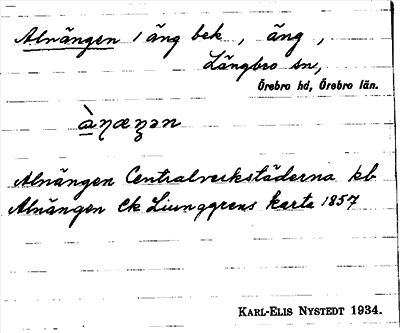 Alnängen / äng bek , äng ,
Längbro sn,
Örebro hd, Örebro län.
Alnängen Centralverkstäderna kb
Alnängen Ek Liunggrens karta 1857
KARL-ELIS NYSTEDT 1934.